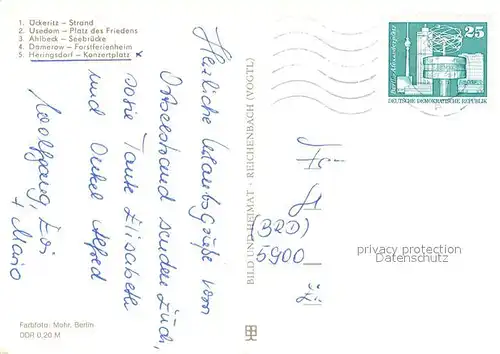 1. Ückeritz – Strand
2. Usedom – Platz des Friedens
3. Ahlbeck – Seebrücke
4. Damerow – Forstferienheim
5. Heringsdorf – Konzertplatz x
Herzliche Urlaubsgrüße vom
Ostseestrand senden Euch,
sowie Tante Elisabeth
und Onkel Alfred
Wolfgang, Evi
+ Mario
Farbfoto: Mohr, Berlin
DDR 0,20 M
BILD UND HEIMAT · REICHENBACH (VOGTL)
25
Berlin, Alexanderplatz
DEUTSCHE DEMOKRATISCHE REPUBLIK
(BRD)
5900
privacy protection
Datenschutz